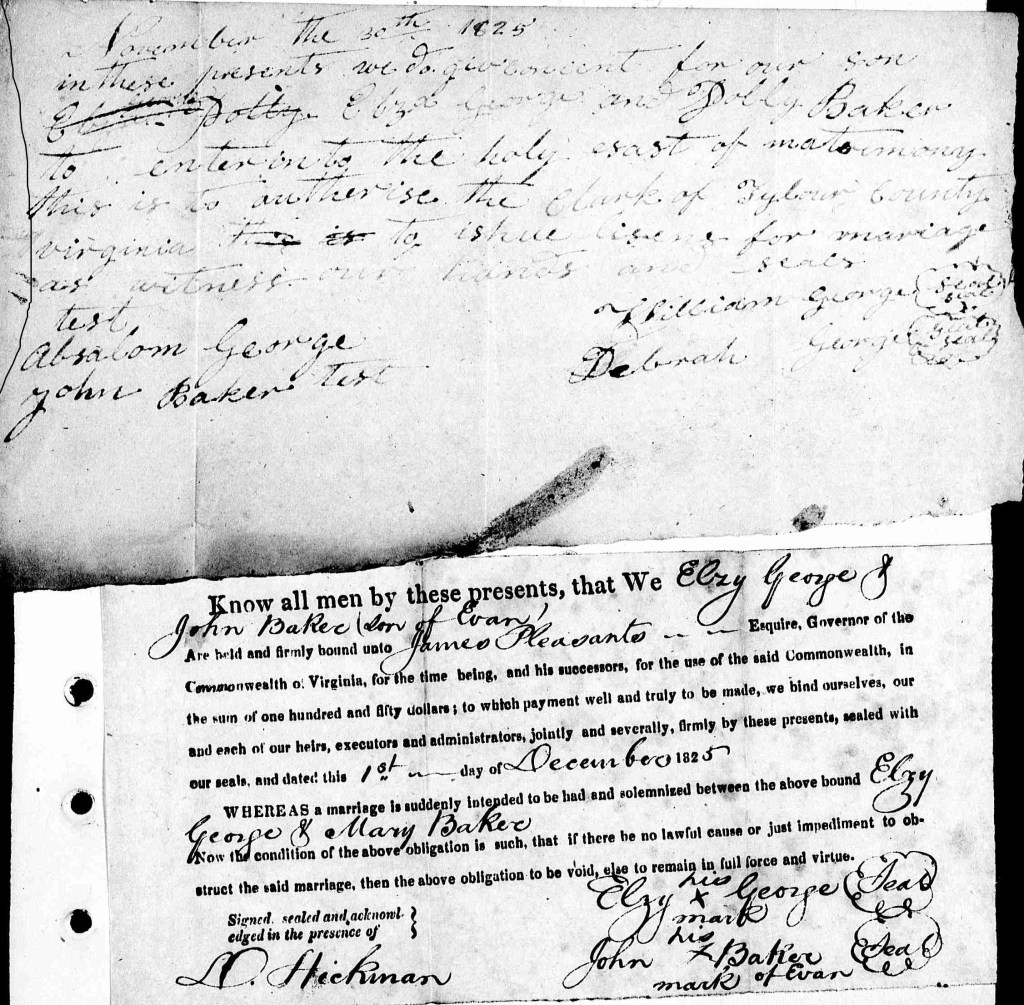 November the 30th 1825
in these presents we do give concent for our son
Polly Elzy George and Polly Baker
to enter in to the holy esast of matrimony
this is to autherise the Clark of Tylour County
virginia this is to ishue lisens for mariage
as witness our hands and seals
test
William George Seal
Absalom George
Debrah George Seal
John Baker test
Know all men by these presents, that We Elzy George &
John Baker (son of Evan)
Are held and firmly bound unto James Pleasants Esquire, Governor of the
Commonwealth of Virginia, for the time being, and his successors, for the use of the said Commonwealth, in
the sum of one hundred and fifty dollars; to which payment well and truly to be made, we bind ourselves, our
and each of our heirs, executors and administrators, jointly and severally, firmly by these presents, sealed with
our seals, and dated this 1st day of December 1825
WHEREAS a marriage is suddenly intended to be had and solemnized between the above bound Elzy
George & Mary Baker
Now the condition of the above obligation is such, that if there be no lawful cause or just impediment to ob-
struct the said marriage, then the above obligation to be void, else to remain in full force and virtue.
Elzy his x mark George (Seal)
Signed, sealed and acknowl-
edged in the presence of
John his x mark Baker of Evan (Seal)
D. Hickman